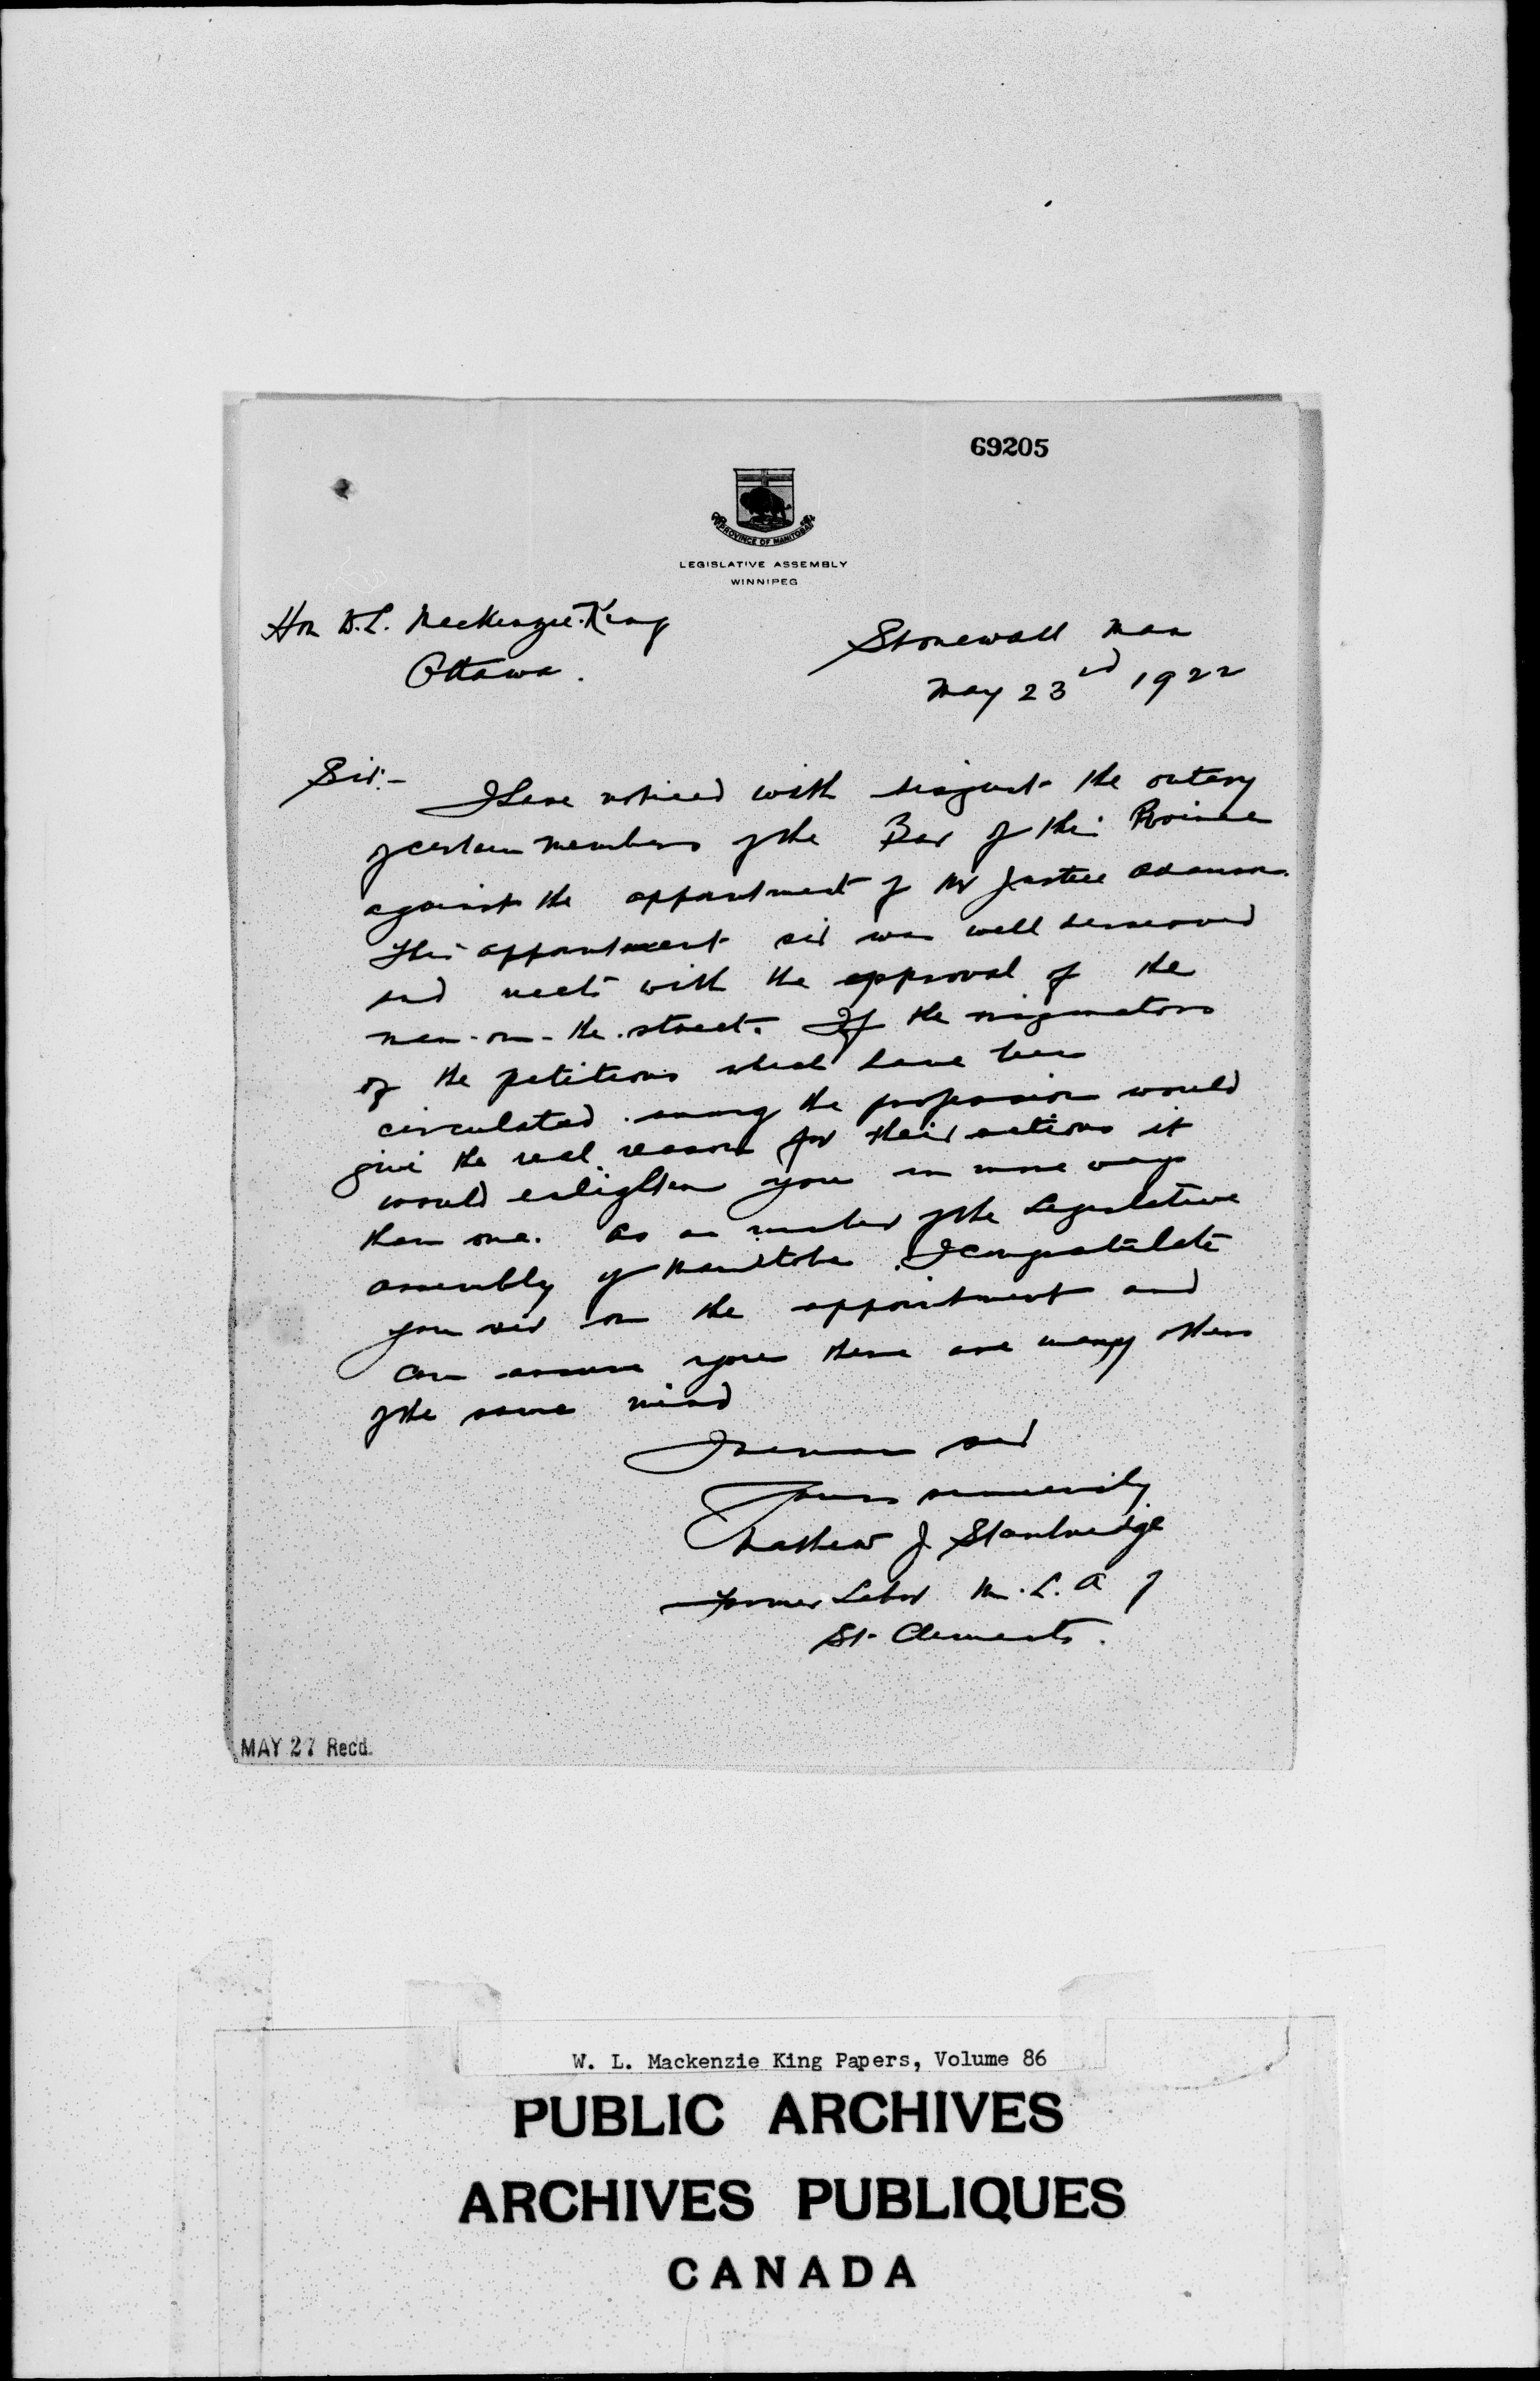 69205
PROVINCE OF MANITOBA
LEGISLATIVE ASSEMBLY
WINNIPEG
Hon W.L. MacKenzie-King
Ottawa.
Stonewall Man
May 23rd 1922
Sir:-
I have noticed with disgust the outcry
of certain members of the Bar of this Province
against the appointment of Mr Justice Adamson.
This appointment sir was well deserved
and meets with the approval of the
man-on-the-street. If the originators
of the petitions which have been
circulated among the profession would
give the real reason for their actions it
would enlighten you in more ways
than one. As an member of the Legislative
assembly of Manitoba I congratulate
you sir on the appointment and
can assure you there are many others
of the same mind
I remain sir
Yours sincerely
Mathew J Stanbridge
Former Labor M.L.A of
St Clements.
MAY 27 Recd.
W. L. Mackenzie King Papers, Volume 86
PUBLIC ARCHIVES
ARCHIVES PUBLIQUES
CANADA